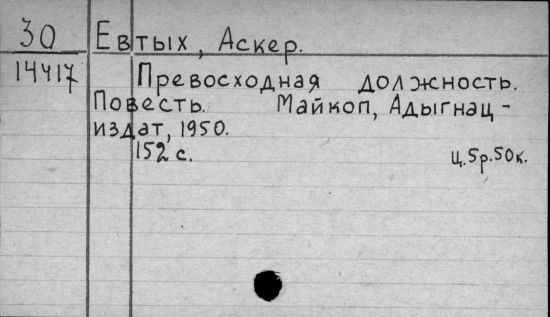 30 Евтых, Аскер.
14417 Превосходная должность.
Повесть. Майкоп, Адыгнац-
издат, 1950.
152 с. ц. 5р. 50к.